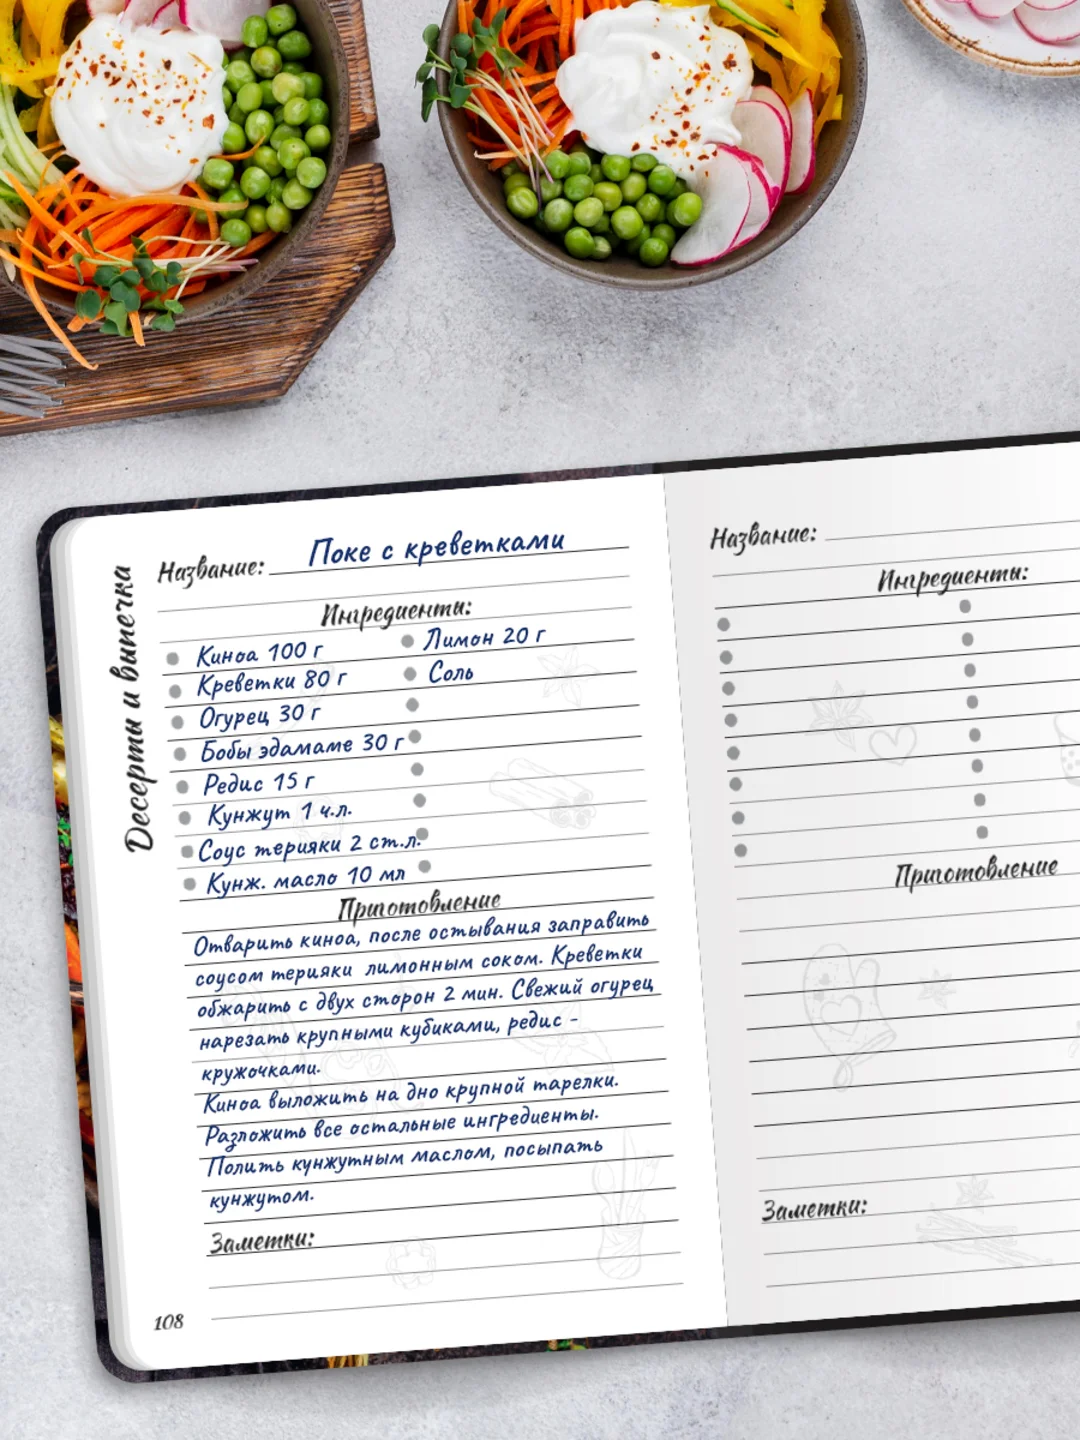 Десерты и выпечка
Название: Поке с креветками
Ингредиенты:
Киноа 100 г
Креветки 80 г
Огурец 30 г
Бобы эдамаме 30 г
Редис 15 г
Кунжут 1 ч.л.
Соус терияки 2 ст.л.
Кунж. масло 10 мл
Лимон 20 г
Соль
Приготовление
Отварить киноа, после остывания заправить
соусом терияки лимонным соком. Креветки
обжарить с двух сторон 2 мин. Свежий огурец
нарезать крупными кубиками, редис -
кружочками.
Киноа выложить на дно крупной тарелки.
Разложить все остальные ингредиенты.
Полить кунжутным маслом, посыпать
кунжутом.
Заметки:
108
Название:
Ингредиенты:
Приготовление
Заметки: